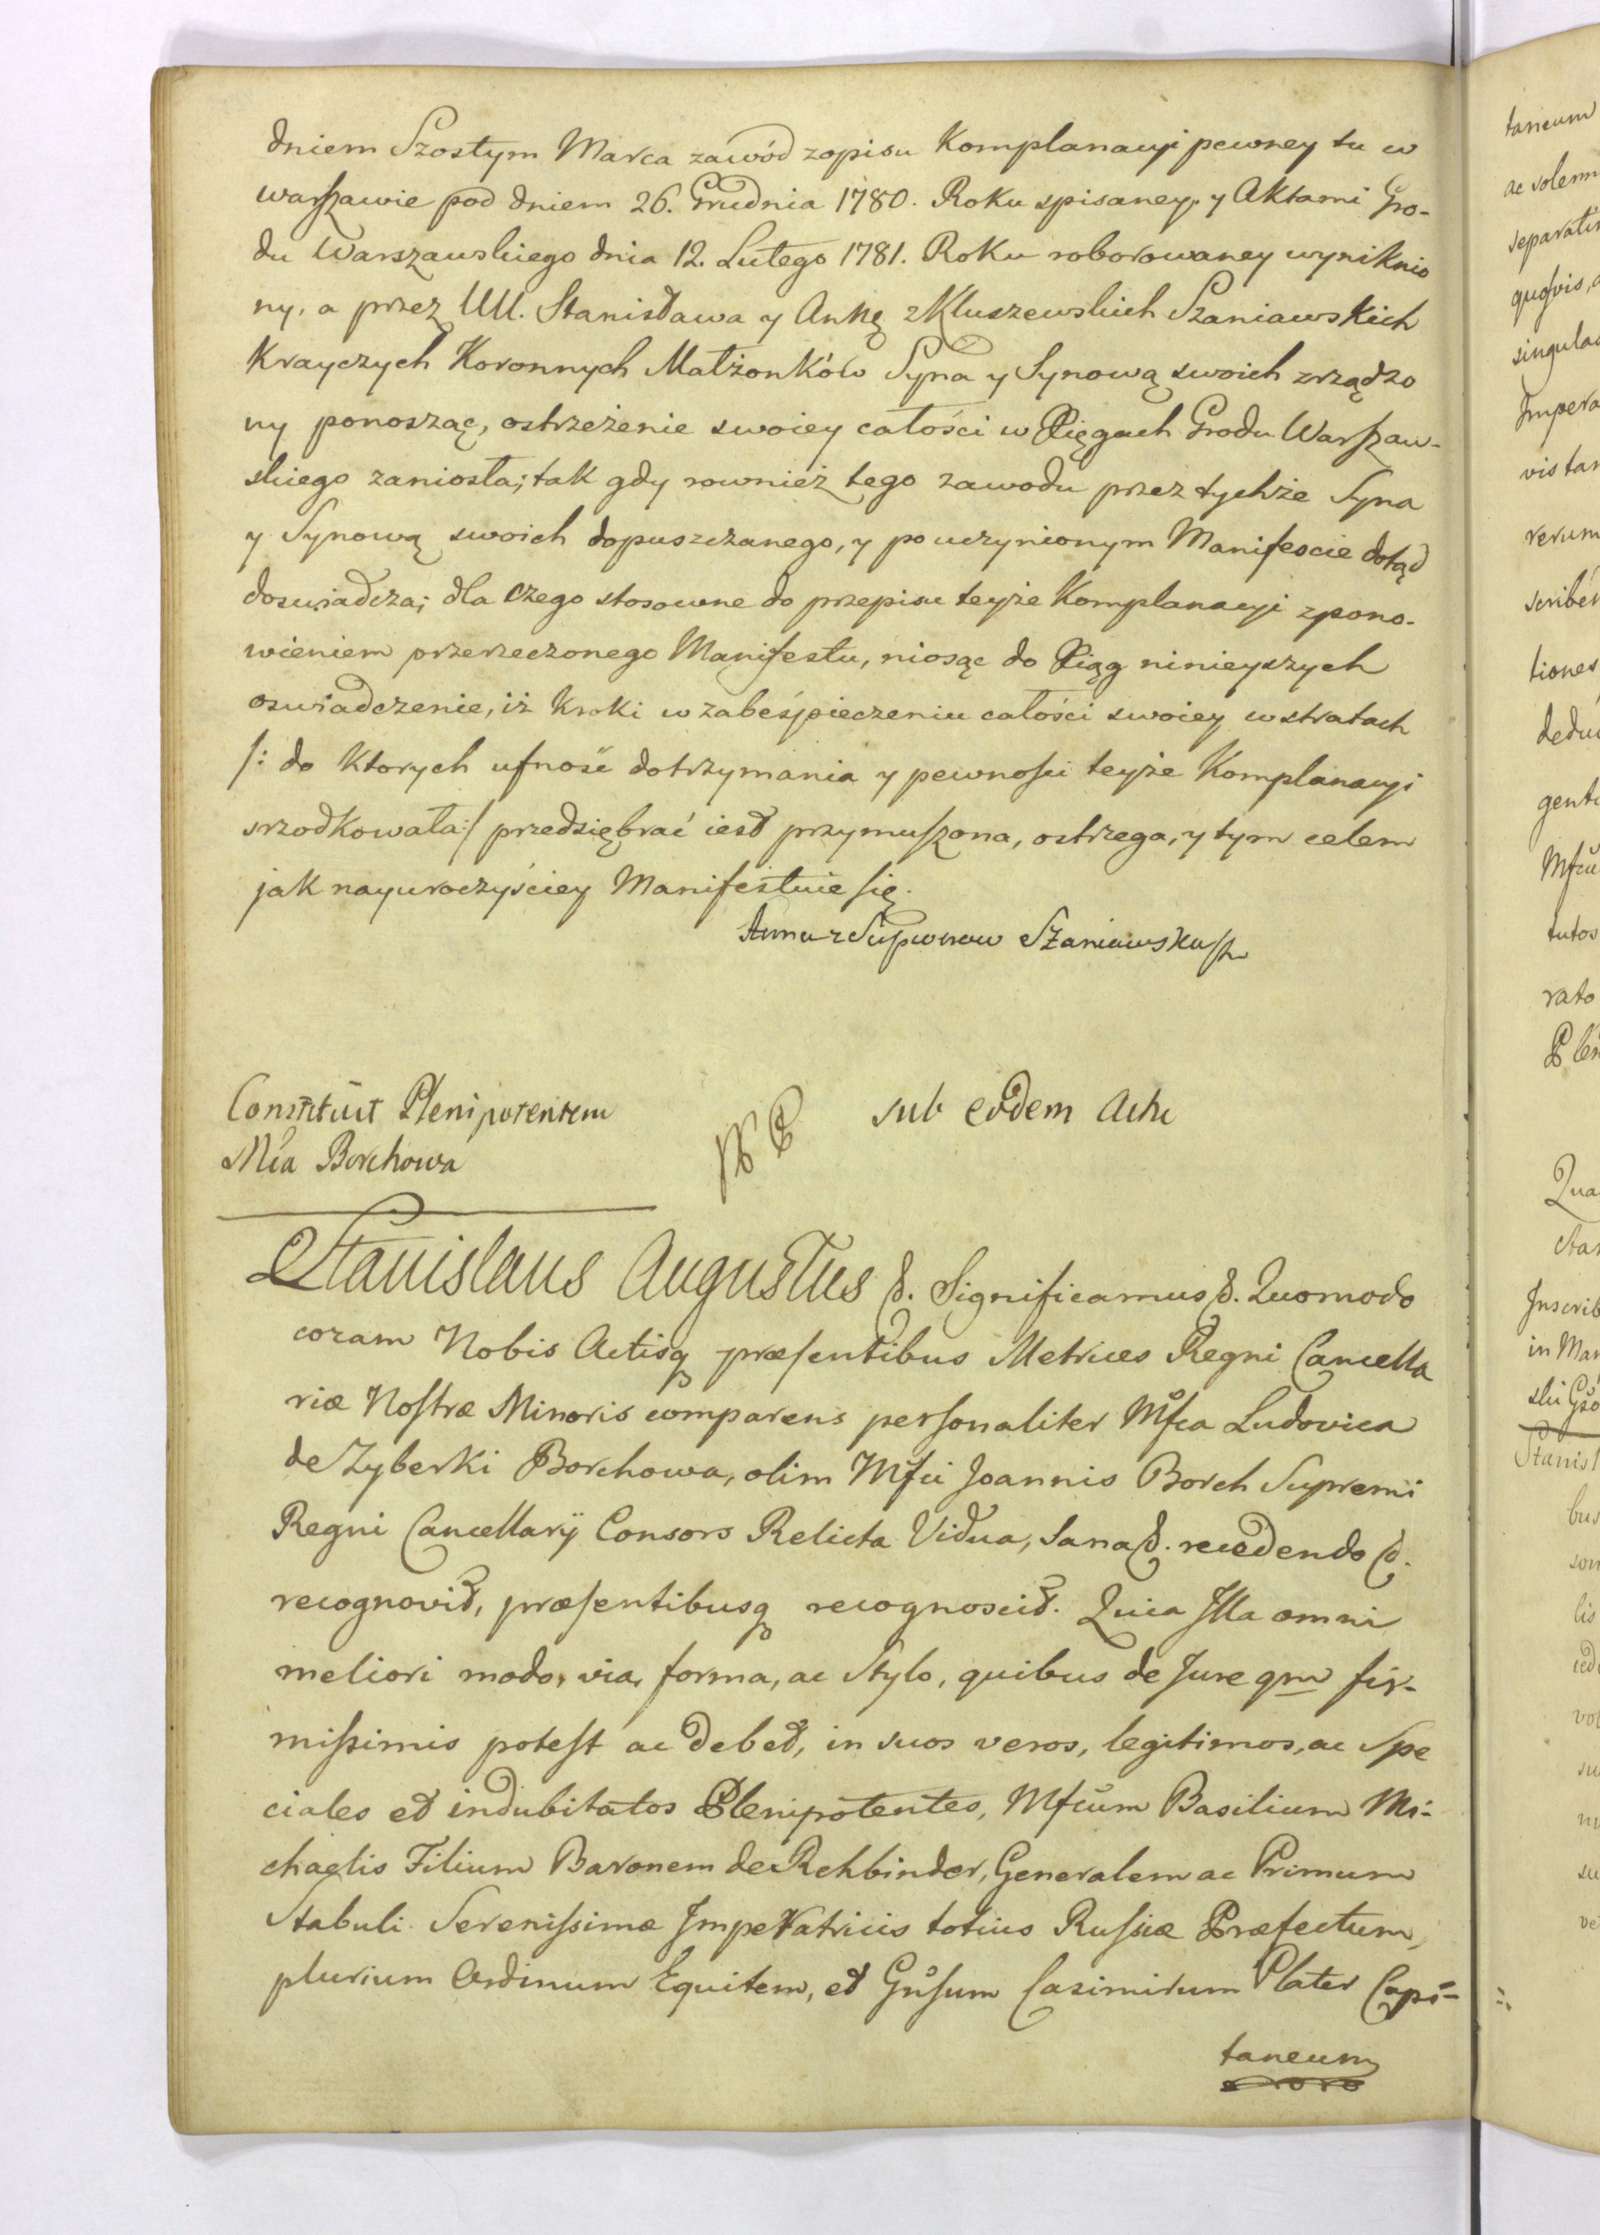 dniem Szostym Marca zawód zopisu Komplanacyi pewney tu w
warszawie pod dniem 26. Grudnia 1780. Roku spisaney, y Aktami Gro-
du Warszawskiego dnia 12. Lutego 1781. Roku roborowaney wyniknio
ny, a przez UU. Stanisława y Annę z Kluszewskich Szaniawskich
Krayczych Koronnych Małżonków Syna y Synową swoich zrządzo
ny ponosząc, ostrzeżenie swoiey całości w Xięgach Grodu Warszaw-
skiego zaniosła; tak gdy rownież tego zawodu przez tychże Syna
y Synową swoich dopuszczanego, y po uczynionym Manifescie dotąd
doswiadcza; dla czego stosowne do przepisu teyże Komplanacyi z pono-
wieniem przerzeczonego Manifestu, niosąc do Xiąg ninieyszych
oswiadczenie, iż kroki w zabeśpieczeniu całości swoiey w stratach
/: do ktorych ufność dotrzymania y pewności teyże Komplanacyi
srzodkowała:/ przedsiębrać iest przymuszona, ostrzega, y tym celem
jak nayuroczyściey Manifestuie się.
Anna z Szaniawska
Constituit Plenipotentem
Mca Borchowa
sub eodem Actu
Stanislaus Augustus &. Significamus &. Quomodo
coram Nobis Actisq præsentibus Metrices Regni Cancella
riæ Nostræ Minoris comparens personaliter Mfca Ludovica
de Zyberki Borchowa, olim Mfci Joannis Borch Supremi
Regni Cancellarij Consors Relicta Vidua, Sana &. recedendo &.
recognovit, præsentibusq recognoscit. Quia Illa omni
meliori modo, via, forma, ac Stylo, quibus de Jure qm fir-
missimis potest ac debet, in suos veros, legitimos, ac Spe
ciales et indubitatos Plenipotentes, Mfcum Basilium Mi-
chaelis Filium Baronem de Rehbinder, Generalem ac Primum
Stabuli Serenissimæ Imperatricis totius Russiæ Præfectum,
plurium Ordinum Equitem, et Gnsum Casimirum Plater Capi-
taneum
taneum
ac solenn
separatim
quosvis, a
singula
Impera
vis tan
rerum
scribe
tiones
dedu
genti
Mfcu
tutos
rato
Qua
Inscrib
in Man
Stanisl
bus